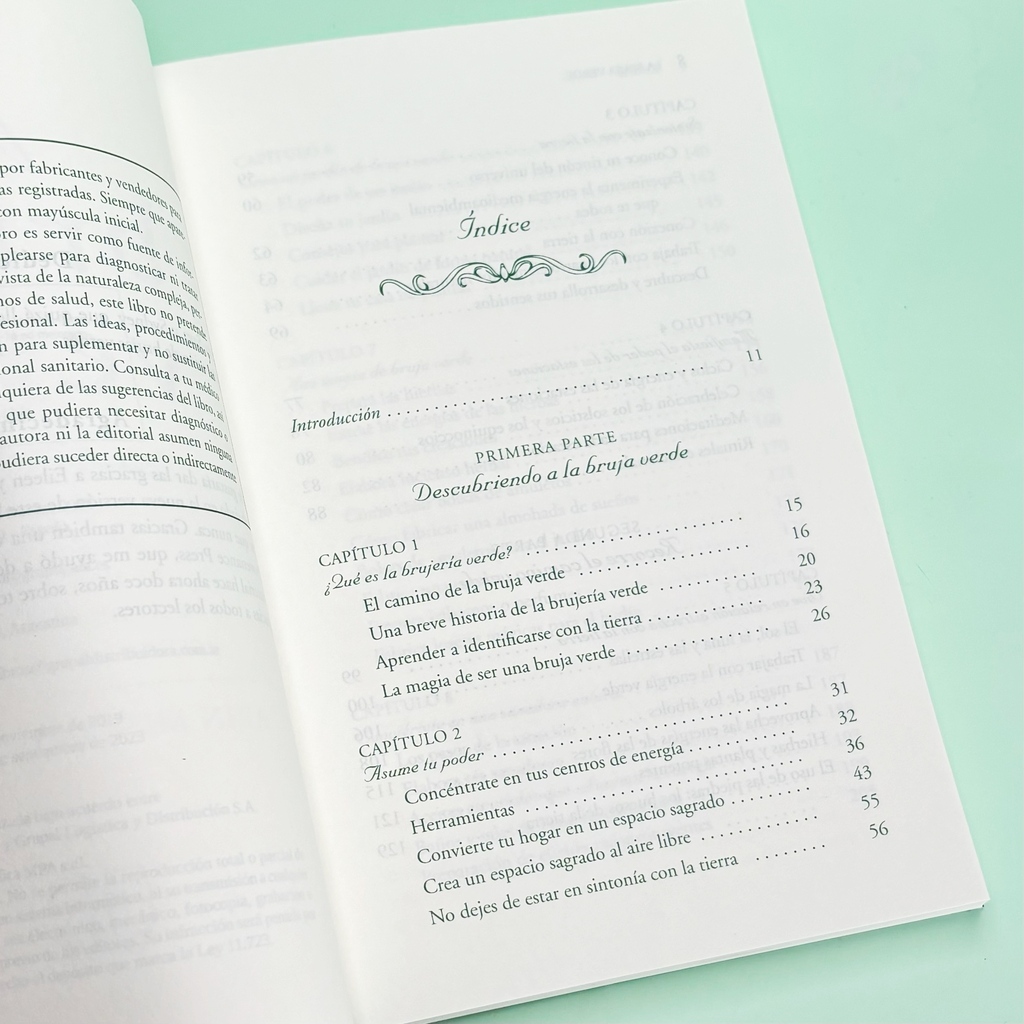 por fabricantes y vendedores para
as registradas. Siempre que
con mayúscula inicial.
ro es servir como fuente de
plearse para diagnosticar ni tratar
vista de la naturaleza compleja,
nos de salud, este libro no pretende
fesional. Las ideas, procedimientos y
n para suplementar y no sustituir
onal sanitario. Consulta a tu médico
quiera de las sugerencias del libro,
que pudiera necesitar diagnóstico o
autora ni la editorial asumen ninguna
pudiera suceder directa o indirectamente
Índice
Introducción . . . . . . . . . . . . . . . . . . . . . . . . . . . . . . 11
PRIMERA PARTE
Descubriendo a la bruja verde
CAPÍTULO 1
¿Qué es la brujería verde? . . . . . . . . . . . . . . . . . . . . 15
El camino de la bruja verde . . . . . . . . . . . . . . . . 16
Una breve historia de la brujería verde . . . . . . . . . 20
Aprender a identificarse con la tierra . . . . . . . . . . 23
La magia de ser una bruja verde . . . . . . . . . . . . . 26
CAPÍTULO 2
Asume tu poder . . . . . . . . . . . . . . . . . . . . . . . . . . . 31
Concéntrate en tus centros de energía . . . . . . . . . . 32
Herramientas . . . . . . . . . . . . . . . . . . . . . . . . . 36
Convierte tu hogar en un espacio sagrado . . . . . . . . 43
Crea un espacio sagrado al aire libre . . . . . . . . . . . 55
No dejes de estar en sintonía con la tierra . . . . . . . 56